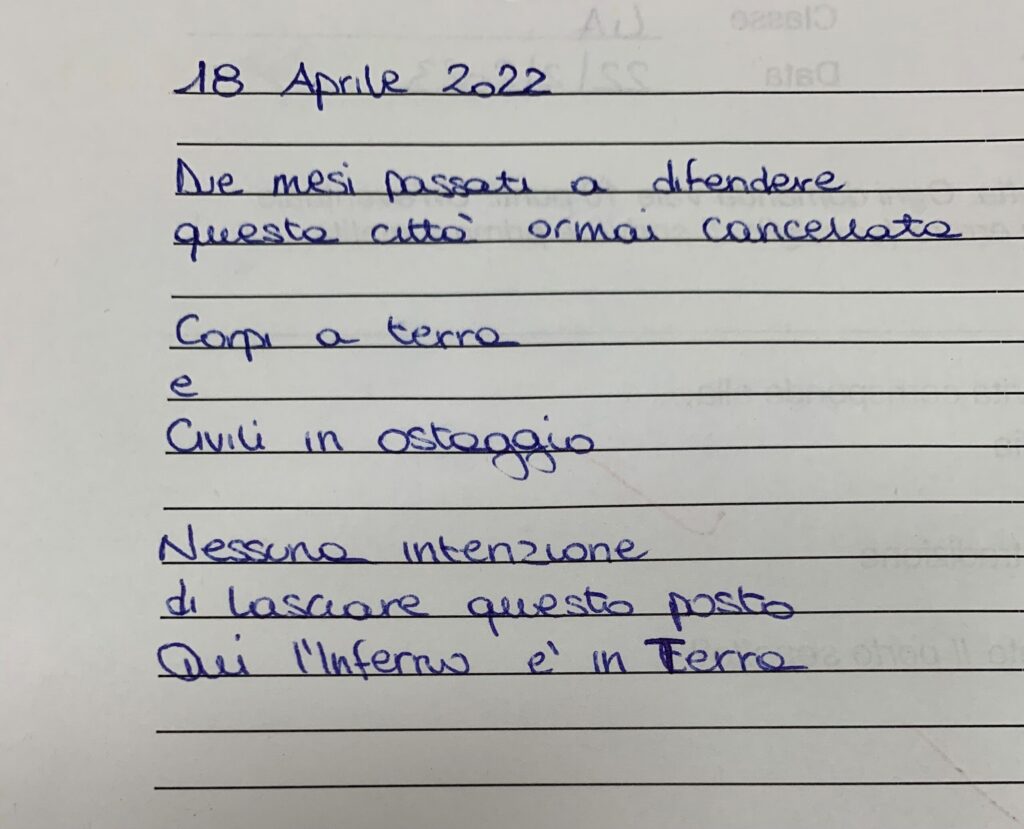 18 Aprile 2022
Due mesi passati a difendere
questa città ormai cancellata
Corpi a terra
e
Civili in ostaggio
Nessuna intenzione
di lasciare questo posto
Qui l'Inferno è in Terra